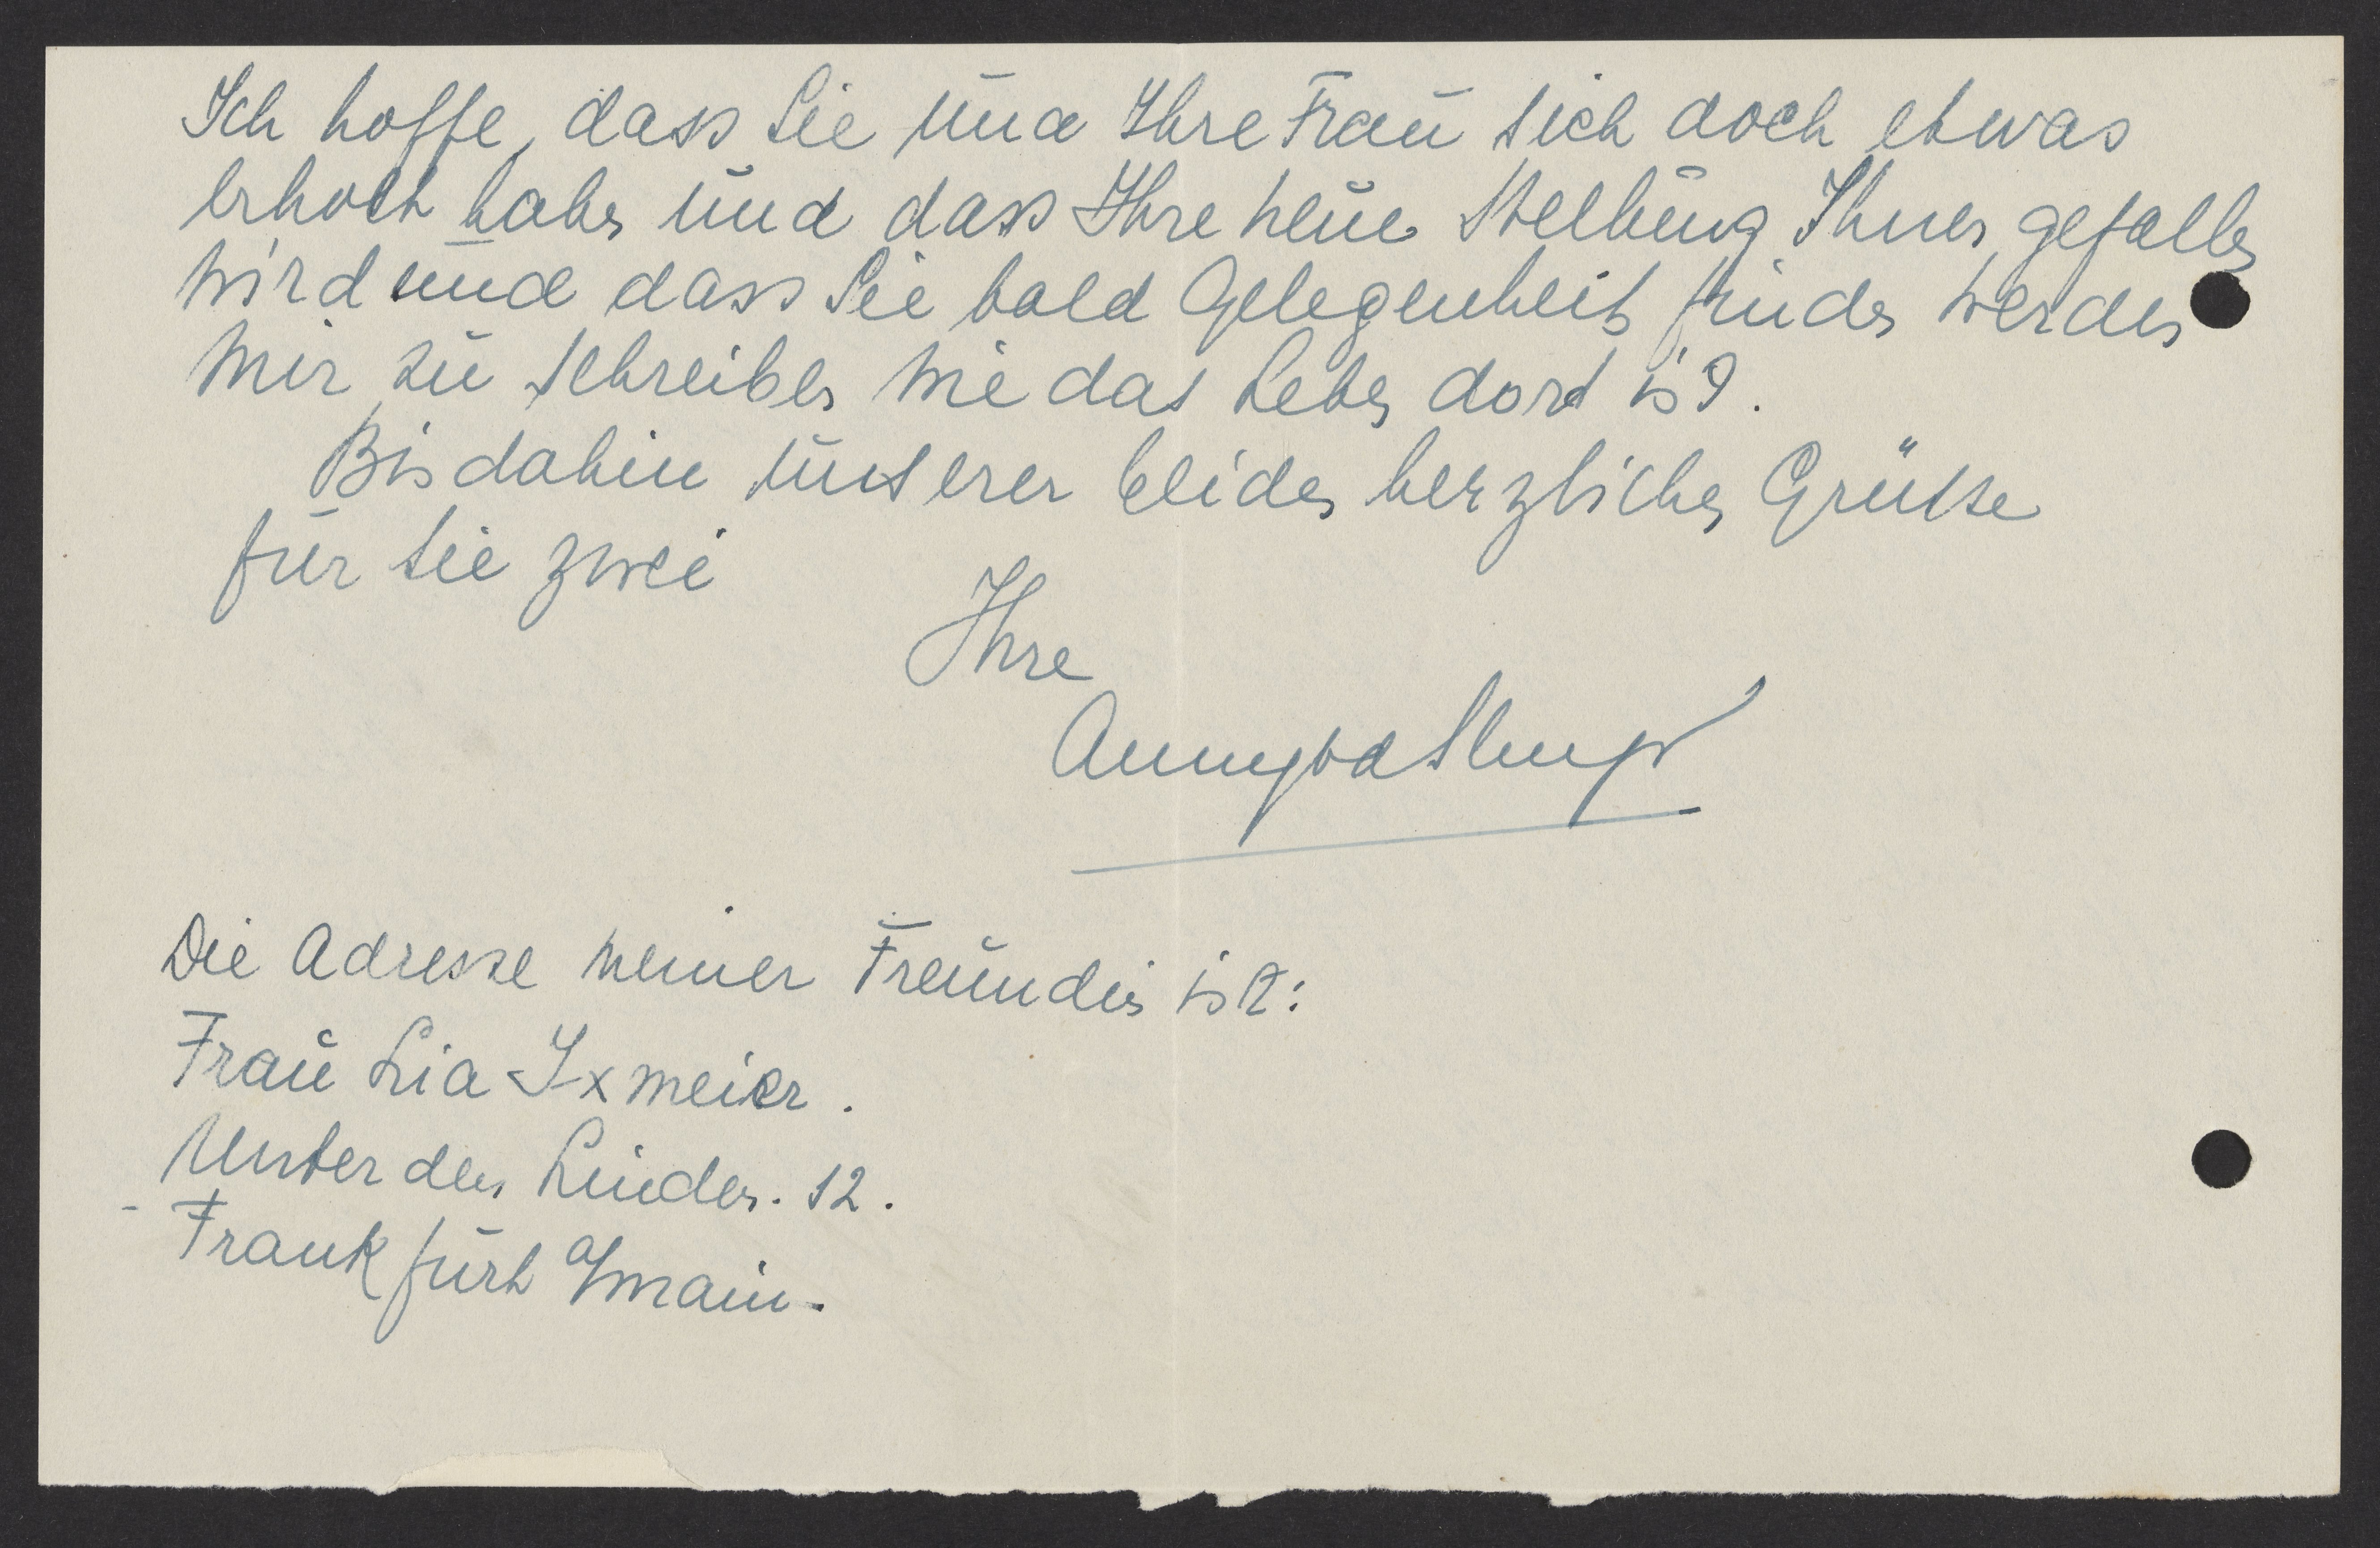 Ich hoffe, dass Sie und Ihre Frau sich doch etwas
erholt haben und dass Ihre neue Stellung Ihnen gefallen
wird und dass Sie bald Gelegenheit finden werden
mir zu schreiben wie das Leben dort ist.
Bis dahin unserer beiden herzlichen Grüsse
für Sie zwei
Ihre
Die Adresse meiner Freundin ist:
Frau Lia Ixmeier.
Unter den Linden. 12.
Frankfurt a/Main.